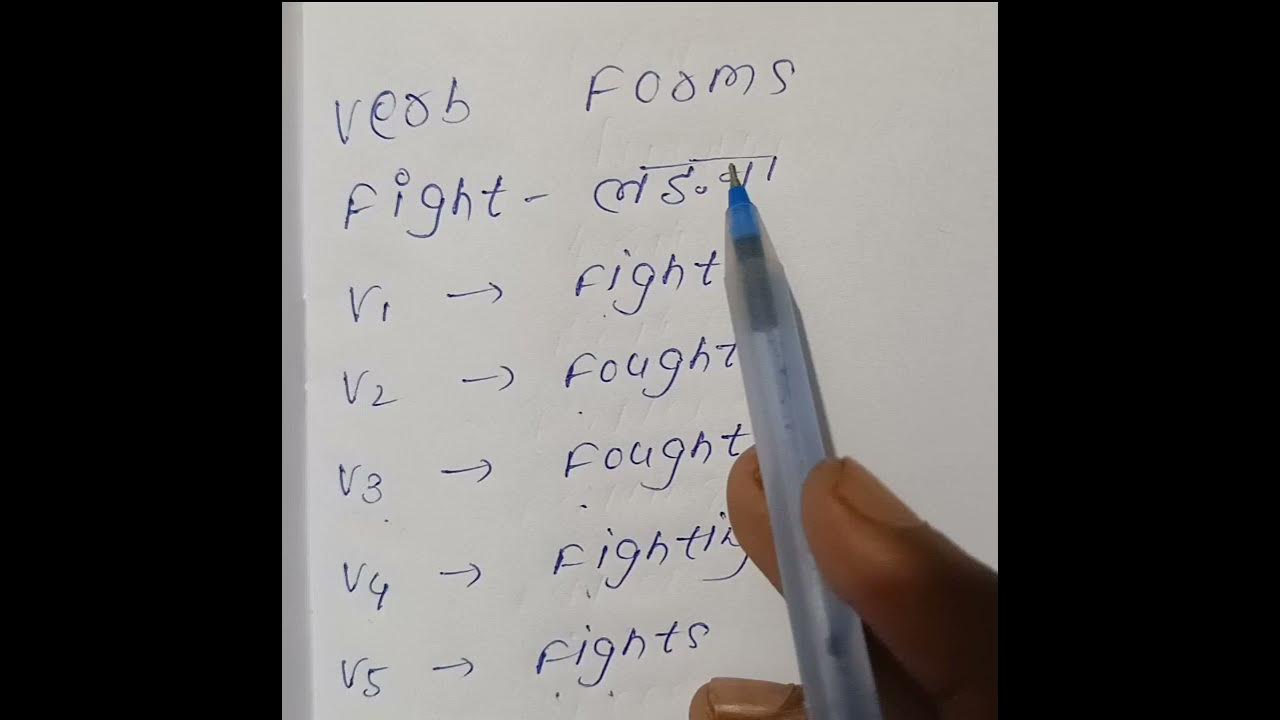 Verb Forms
Fight -
V1 → Fight
V2 → Fought
V3 → Fought
V4 → Fighting
V5 → Fights